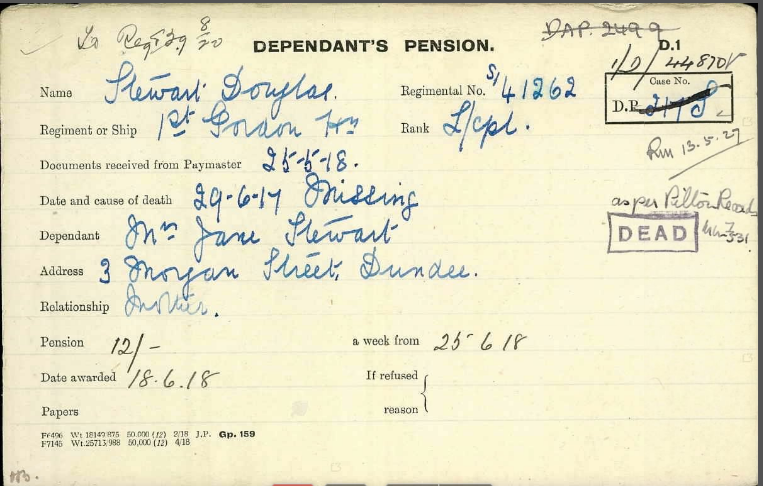 To Reg 8/20
DEPENDANT'S PENSION.
DAP. 2499
D.1
1/D/4487
Name Stewart Douglas. Regimental No. S/41262
Case No.
D.P.
Regiment or Ship 1st Gordon Hrs Rank L/cpl.
Rm 13.5.27
Documents received from Paymaster 25-5-18.
Date and cause of death 29-6-17 Missing
as per
DEAD
Dependant Mrs Jane Stewart
Address 3 Morgan Street, Dundee.
Relationship Mother.
Pension 12/- a week from 25 6 18
Date awarded 18.6.18 If refused
Papers reason
F6496 Wt 18149/875 50,000 (12) 2/18 J.P. Gp. 159
F7145 Wt.25713/988 50,000 (12) 4/18